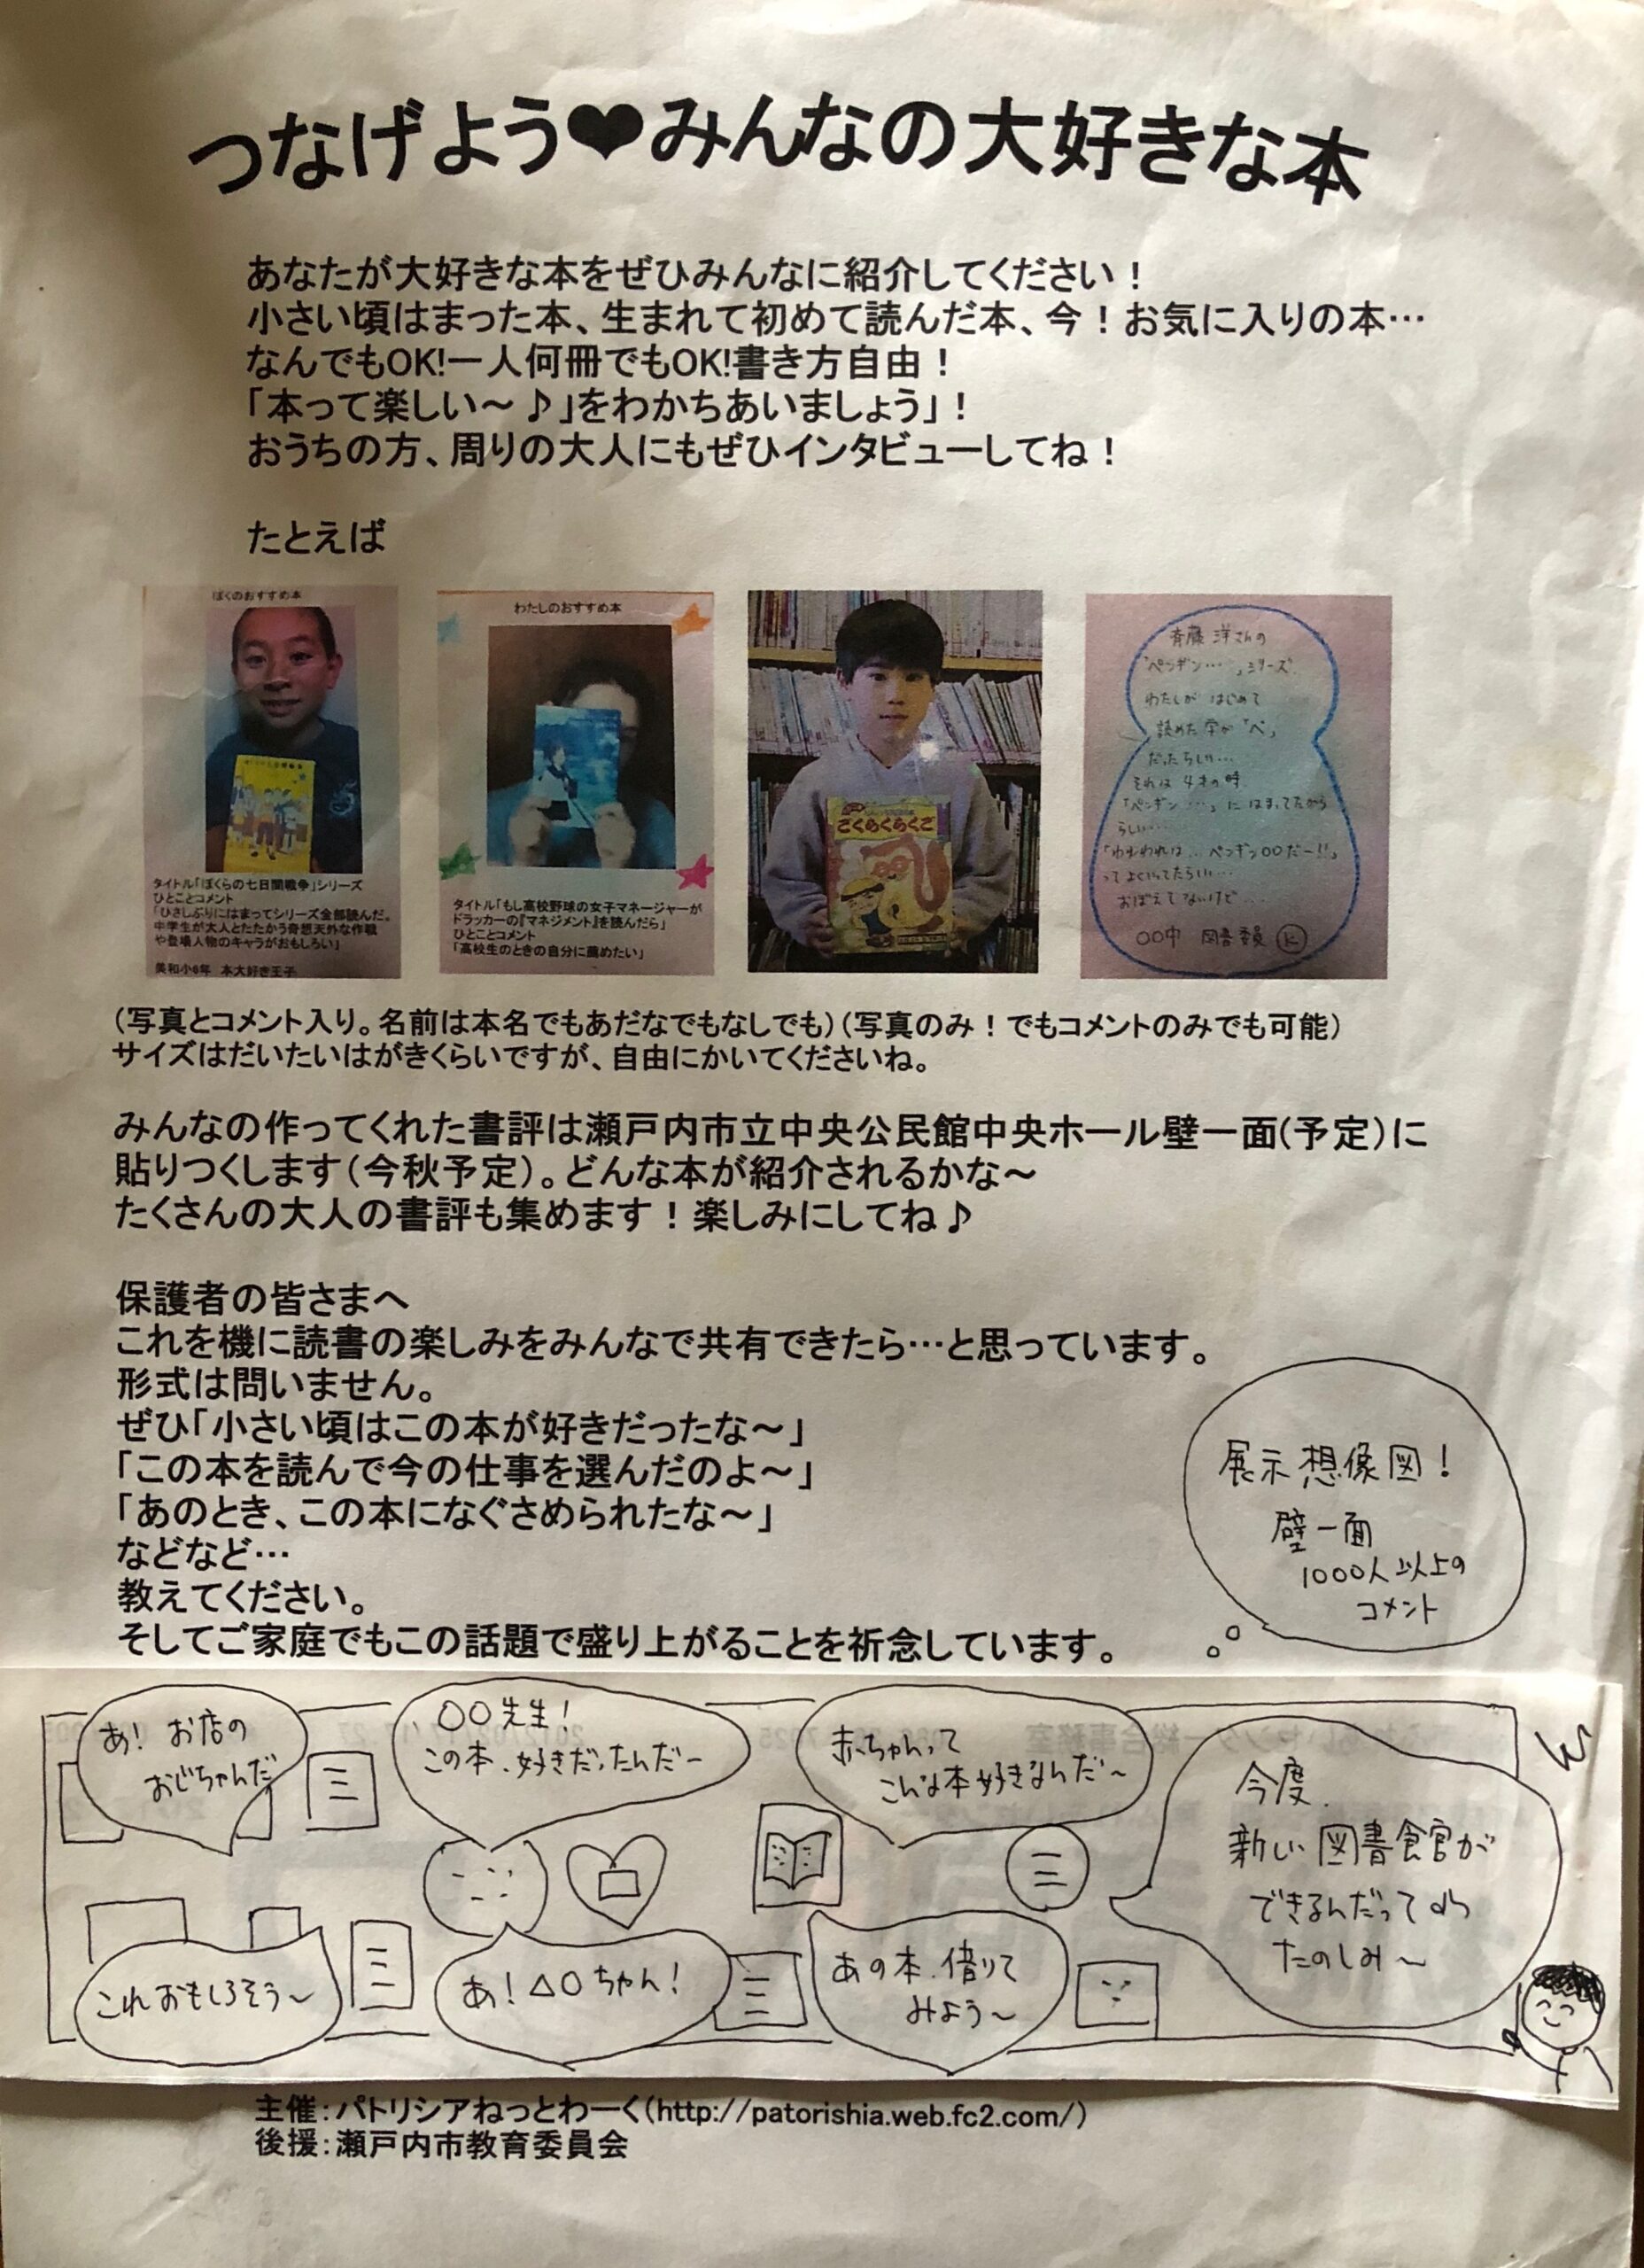 つなげよう❤みんなの大好きな本
あなたが大好きな本をぜひみんなに紹介してください！
小さい頃はまった本、生まれて初めて読んだ本、今！お気に入りの本…
なんでもOK!一人何冊でもOK!書き方自由！
「本って楽しい～♪」をわかちあいましょう」！
おうちの方、周りの大人にもぜひインタビューしてね！
たとえば
ぼくのおすすめ本
タイトル「ぼくらの七日間戦争」シリーズ
ひとことコメント
「ひさしぶりにはまってシリーズ全部読んだ。
中学生が大人とたたかう奇想天外な作戦
や登場人物のキャラがおもしろい」
美和小6年　本大好き王子
わたしのおすすめ本
タイトル「もし高校野球の女子マネージャーが
ドラッカーの『マネジメント』を読んだら」
ひとことコメント
「高校生のときの自分に薦めたい」
ごくらくらくご
斉藤 洋さんの
「ペンギン……」シリーズ
わたしが はじめて
読めた字が「ペ」
だったらしい…
それは 4才の時
「ペンギン…」に はまってたから
らしい…
「われわれは… ペンギン〇〇だー!!」
ってよくいってたらしい…
おぼえてないけど…
〇〇中　図書委員 K
（写真とコメント入り。名前は本名でもあだなでもなしでも）（写真のみ！でもコメントのみでも可能）
サイズはだいたいはがきくらいですが、自由にかいてくださいね。
みんなの作ってくれた書評は瀬戸内市立中央公民館中央ホール壁一面(予定)に
貼りつくします（今秋予定）。どんな本が紹介されるかな～
たくさんの大人の書評も集めます！楽しみにしてね♪
保護者の皆さまへ
これを機に読書の楽しみをみんなで共有できたら…と思っています。
形式は問いません。
ぜひ「小さい頃はこの本が好きだったな～」
「この本を読んで今の仕事を選んだのよ～」
「あのとき、この本になぐさめられたな～」
などなど…
教えてください。
そしてご家庭でもこの話題で盛り上がることを祈念しています。
展示想像図！
壁一面
1000人以上の
コメント
あ！お店の
おじちゃんだ
〇〇先生！
この本、好きだったんだー
赤ちゃんって
こんな本好きなんだ～
今度、
新しい図書館が
できるんだってね
たのしみ～
これおもしろそう～
あ！△〇ちゃん！
あの本、借りて
みよう～
主催：パトリシアねっとわーく（http://patorishia.web.fc2.com/）
後援：瀬戸内市教育委員会